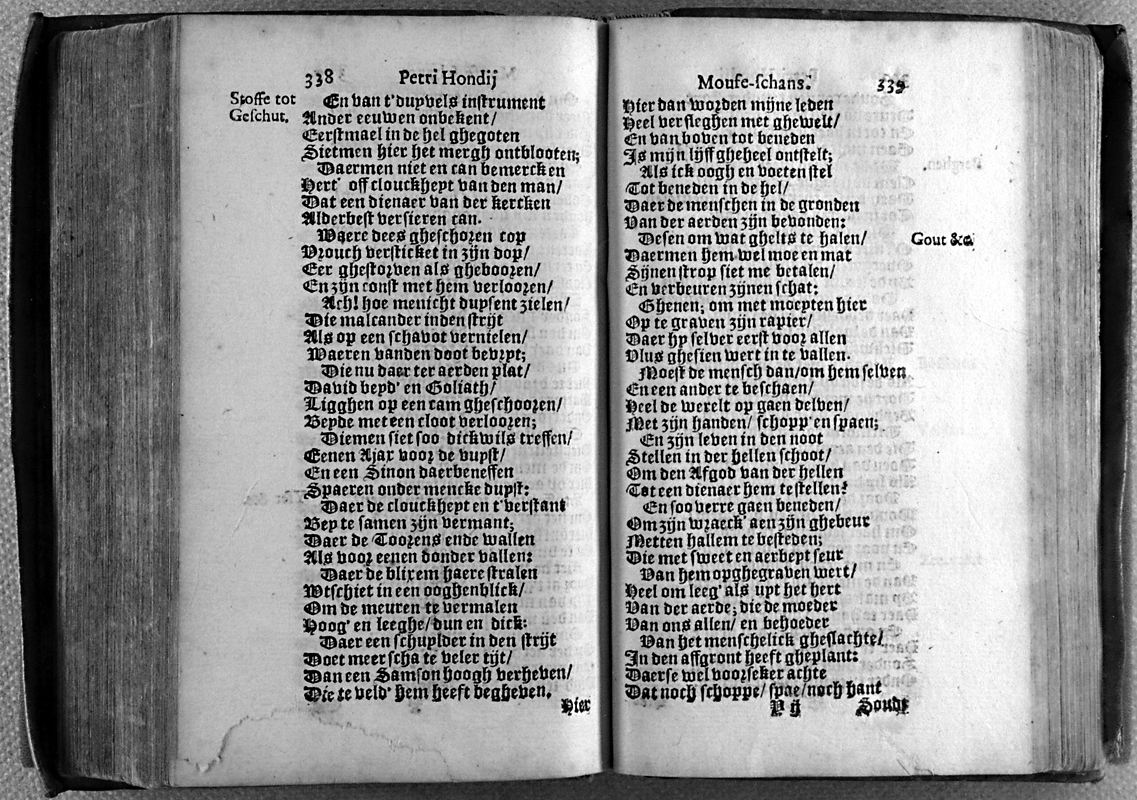 338 Petri Hondij
Stoffe tot
Geschut.
En van t'duyvels instrument
Ander eeuwen onbekent/
Eerstmael in de hel ghegoten
Sietmen hier het mergh ontblooten;
Daermen niet en can bemercken
Hert' off clouckheyt van den man/
Dat een dienaer van der kercken
Alderbest versieren can.
Waere dees gheschoren cop
Vrouch versticket in zijn dop/
Eer ghestorven als ghebooren/
En zijn const met hem verlooren/
Ach! hoe menicht duysent zielen/
Die malcander inden strijt
Als op een schavot vernielen/
Waeren vanden doot bevrijt;
Die nu daer ter aerden plat/
David beyd' en Goliath/
Ligghen op een cam gheschooren/
Beyde met een cloot verlooren;
Diemen siet soo dickwils treffen/
Eenen Ajax voor de vuyst/
En een Sinon daerbeneffen
Spaeren onder mencke duyst:
Daer de clouckheyt en t'verstant
Bey te samen zijn vermant;
Daer de Toorens ende wallen
Als voor eenen donder vallen:
Daer de blixem haere stralen
Wtschiet in een ooghenblick/
Om de meuren te vermalen
Hoog' en leeghe/dun en dick:
Daer een schuylder in den strijt
Doet meer scha te veler tijt/
Dan een Samson hoogh verheven/
Die te veld' hem heeft begheven.
Hier
Moufe-schans: 339
Hier dan worden mijne leden
Heel versleghen met ghewelt/
En van boven tot beneden
Is mijn lijff gheheel ontstelt;
Als ick oogh en voeten stel
Tot beneden in de hel/
Daer de menschen in de gronden
Van der aerden zijn bevonden:
Desen om wat ghelts te halen/
Gout &c.
Daermen hem wel moe en mat
Sijnen strop siet me betalen/
En verbeuren zijnen schat:
Ghenen, om met moeyten hier
Op te graven zijn rapier/
Daer hy selver eerst voor allen
Vlus ghesien wert in te vallen.
Moest de mensch dan/om hem selven
En een ander te beschaen/
Heel de werelt op gaen delven/
Met zijn handen/ schopp' en spaen;
En zijn leven in den noot
Stellen in der hellen schoot/
Om den Afgod van der hellen
Tot een dienaer hem te stellen?
En soo verre gaen beneden/
Om zijn wraeck' aen zijn ghebeur
Metten hallem te besteden;
Die met sweet en aerbeyt seur
Van hem opghegraven wert/
Heel om leeg' als uyt het hert
Van der aerde; die de moeder
Van ons allen/ en behoeder
Van het menschelick gheslachte/
In den affgront heeft gheplant:
Daerse wel voorseker achte
Dat noch schoppe/ spae/noch hant
Y ij Soudt